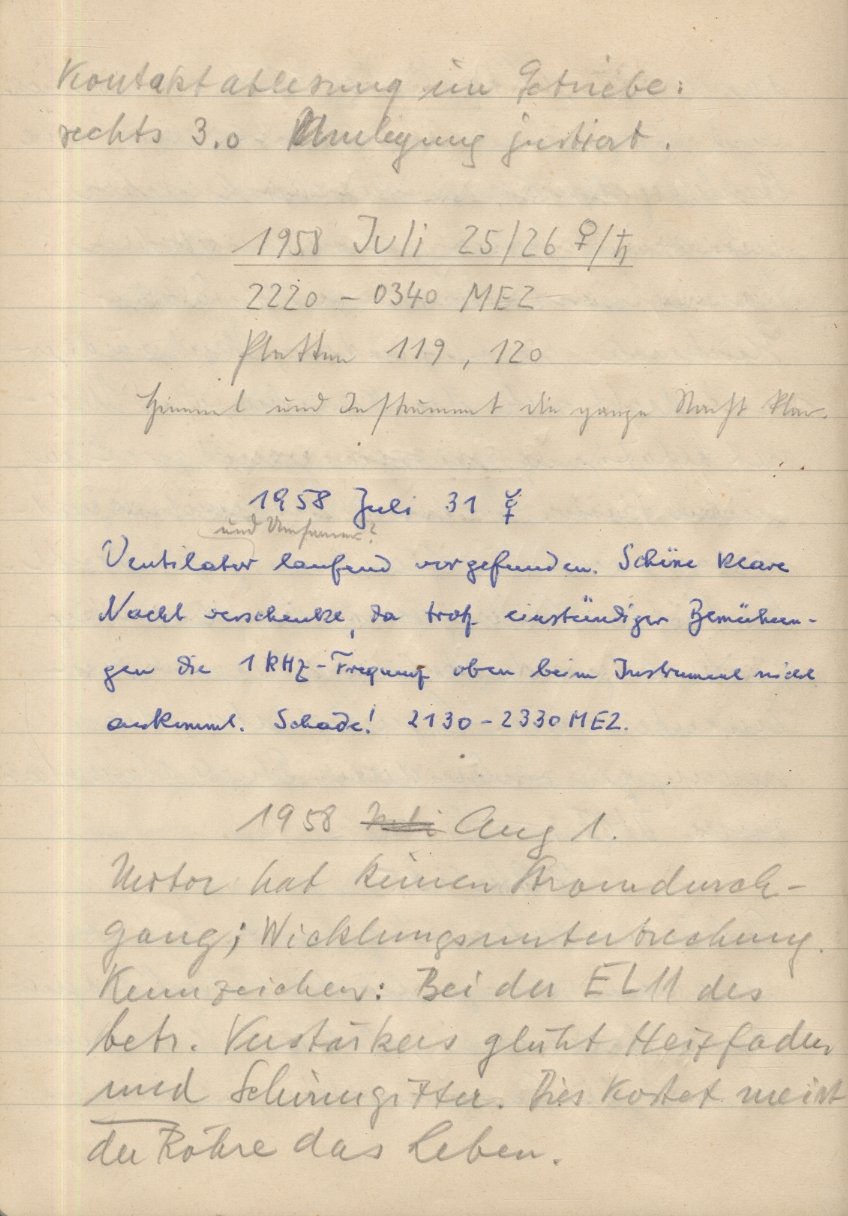 Kontaktablesung im Getriebe:
rechts 3.0 Umlegung justiert.
1958 Juli 25/26 ♀/♄
2220 – 0340 MEZ
Platten 119, 120
Himmel und Instrument die ganze Nacht klar.
1958 Juli 31
und Umformer?
Ventilator laufend vorgefunden. Schöne klare
Nacht verschenkt, da trotz einstündiger Bemühun-
gen die 1 kHz-Frequenz oben beim Instrument nicht
ankommt. Schade! 2130 – 2330 MEZ.
1958 Juli Aug 1.
Motor hat keinen Stromdurch-
gang; Wicklungsunterbrechung.
Kennzeichen: Bei der EL11 des
betr. Verstärkers glüht Heizfaden
und Schirmgitter. Dies kostet meist
der Röhre das Leben.